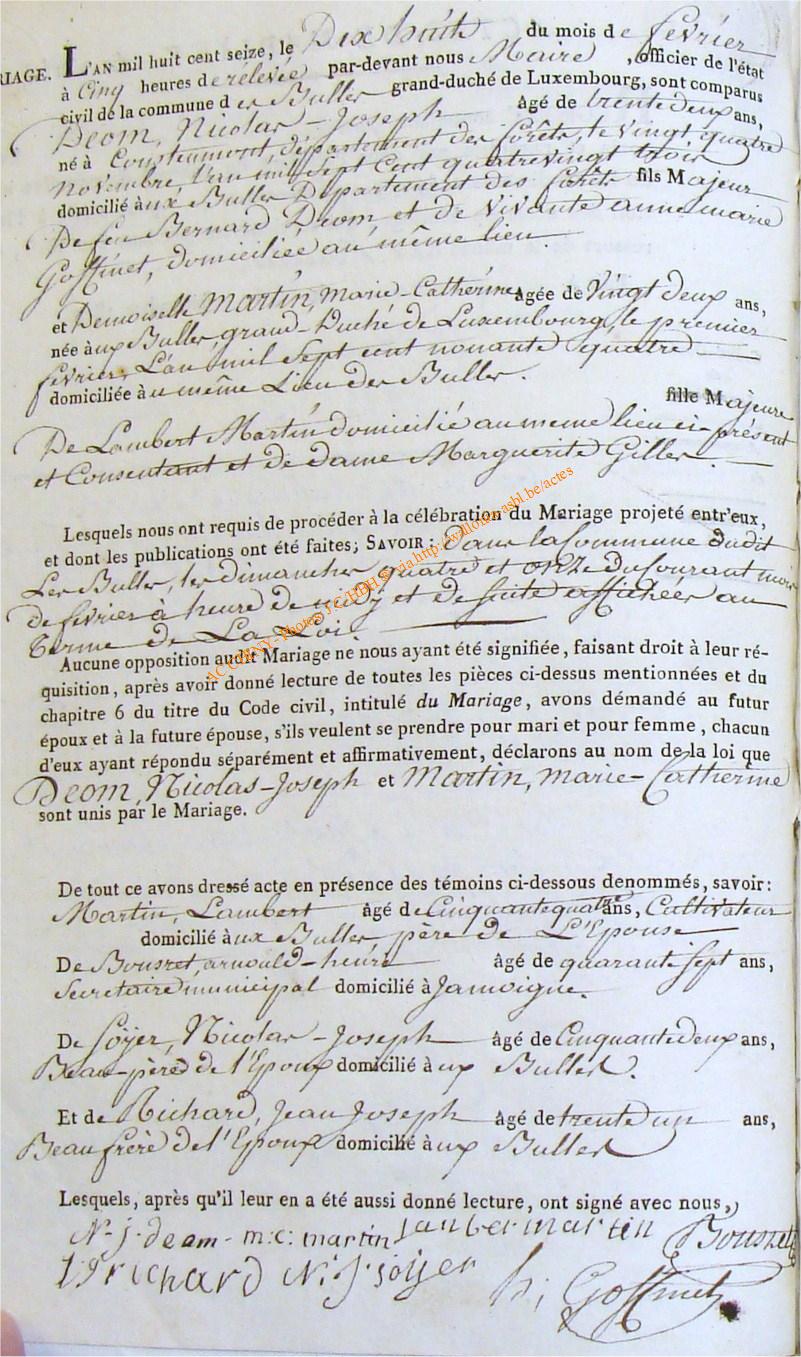 RIAGE. L'AN mil huit cent seize, le Dix huit du mois de fevrier
à Cinq heures de relevée par-devant nous Maire, officier de l'état
civil de la commune des Buller grand-duché de Luxembourg, sont comparus
Deom, Nicolas-Joseph âgé de trente deux ans,
né à département des forêts, le vingt quatre
novembre, L'an mil Sept Cent quatrevingt trois
domicilié àux Buller Département des forêts fils Majeur
De feu Bernard Deom et de vivante anne marie
Goffinet, domiciliée au même lieu.
et Demoiselle Martin, Marie-Catherine âgée de Vingt deux ans,
née àux Buller, grand-Duché de Luxembourg, le premier
fevrier, L'an mil Sept cent nonante quatre
domiciliée àu même Lieu des Buller.
fille Majeure
De Lambert Martin domicilié au même lieu ci-présent
et Consentant et de dame Marguerite Giller.
Lesquels nous ont requis de procéder à la célébration du Mariage projeté entr'eux,
et dont les publications ont été faites; SAVOIR: dans la Commune dudit
Les Buller, les dimanches quatre et onze du Courant mois
de fevrier à heure de midy et de suite affichées au
terme de La Loi.
ACCIGNY- Photos J.C.HBH @ via.http://wallonia-asbl.be/actes
Aucune opposition audit Mariage ne nous ayant été signifiée, faisant droit à leur ré-
quisition, après avoir donné lecture de toutes les pièces ci-dessus mentionnées et du
chapitre 6 du titre du Code civil, intitulé du Mariage, avons démandé au futur
époux et à la future épouse, s'ils veulent se prendre pour mari et pour femme, chacun
d'eux ayant répondu séparément et affirmativement, déclarons au nom de la loi que
Deom, Nicolas-Joseph et Martin, Marie-Catherine
sont unis par le Mariage.
De tout ce avons dressé acte en présence des témoins ci-dessous denommés, savoir:
Martin, Lambert âgé de Cinquante quatre ans, Cultivateur
domicilié àux Buller père de L'Epouse
De Bousret, arnould-henri âgé de quarante sept ans,
Secretaire municipal domicilié à Jamoigne.
De Soÿer, Nicolas-Joseph âgé de Cinquante deux ans,
Beau-père de l'Epoux domicilié àux Buller.
Et de Richard, Jean Joseph âgé de trente un ans,
Beau frère de l'Epoux domicilié àux Buller
Lesquels, après qu'il leur en a été aussi donné lecture, ont signé avec nous,
N. j. deom - m: c: martin Lambert martin Bousret
richard N. J. soijer
Goffinet